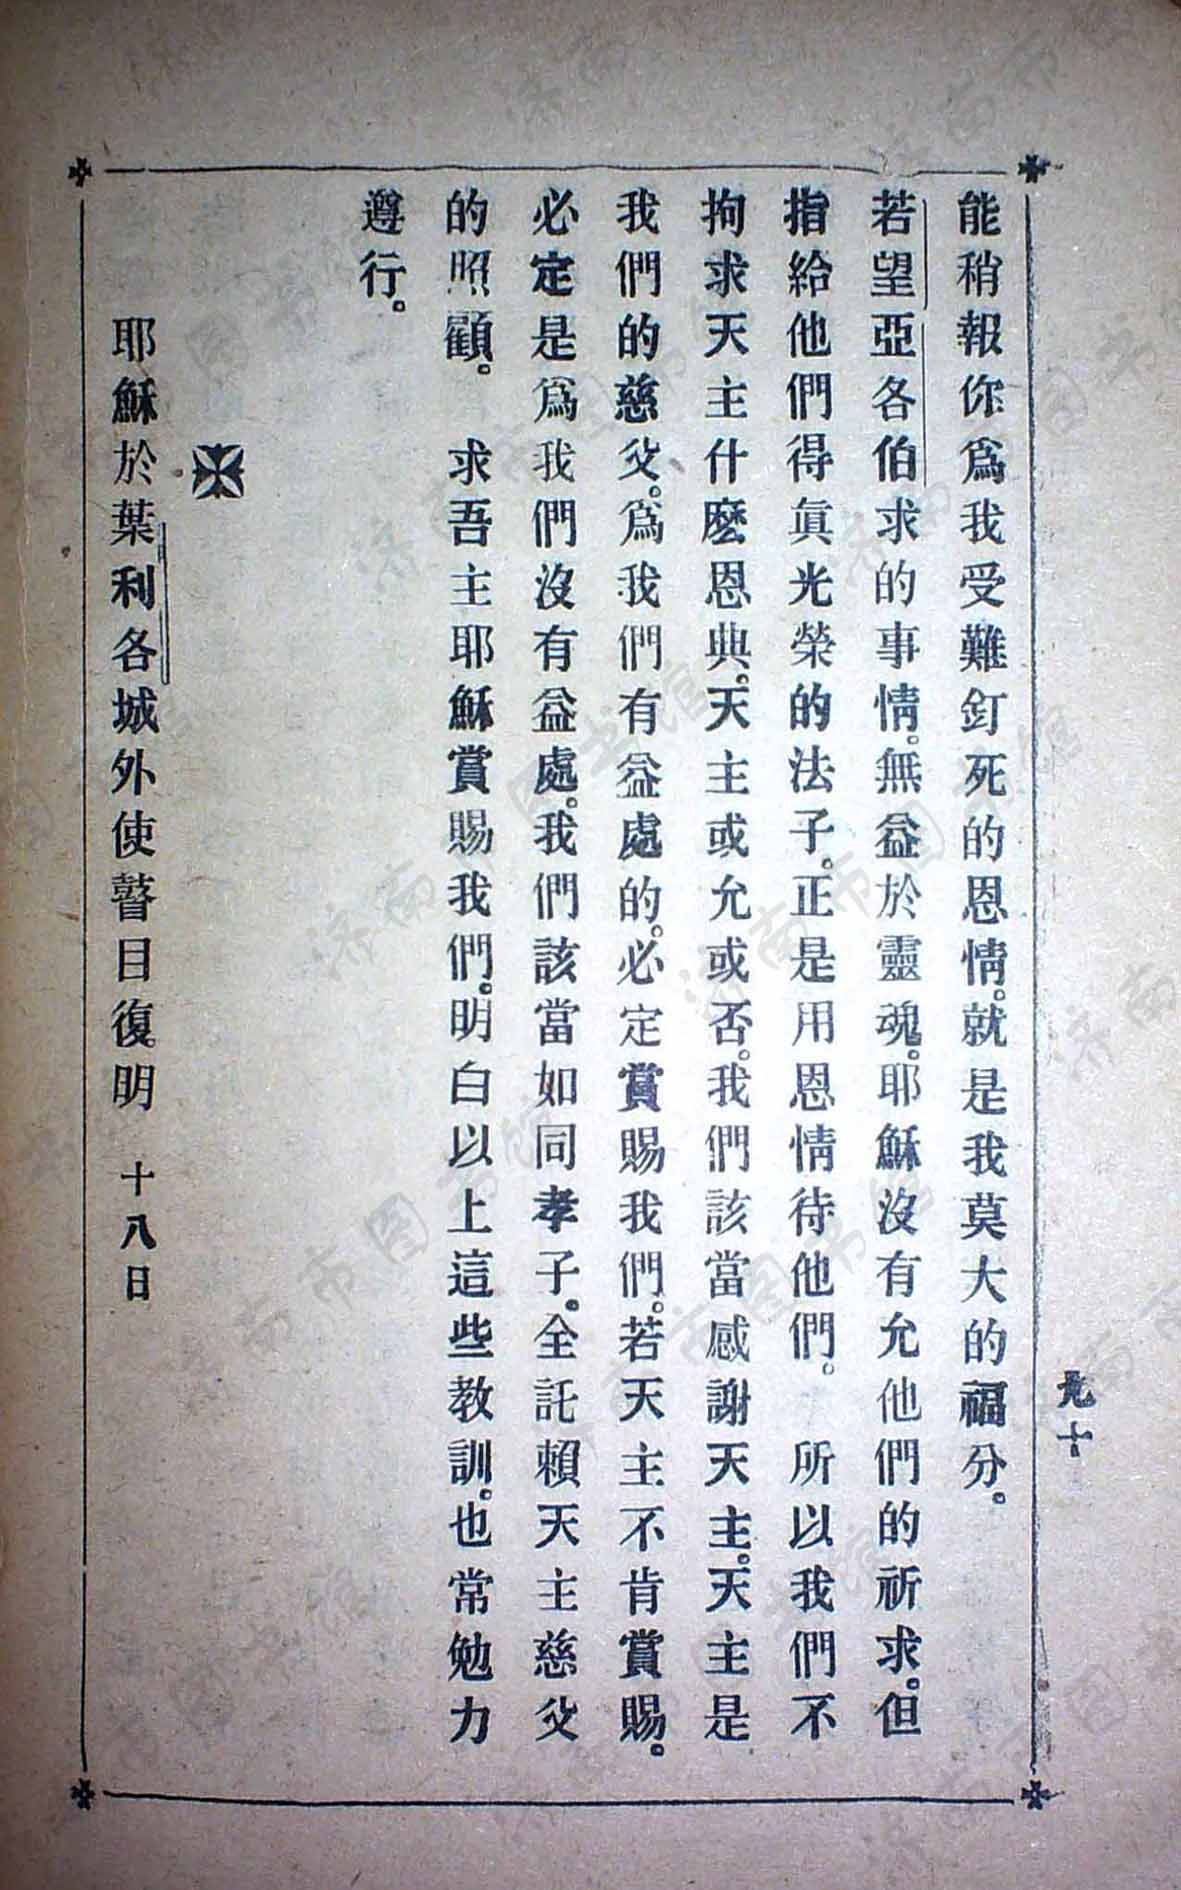 能稍報你爲我受難釘死的恩情。就是我莫大的福分。
若望亞各伯求的事情。無益於靈魂。耶穌沒有允他們的祈求。但
指給他們得眞光榮的法子。正是用恩情待他們。　所以我們不
拘求天主什麽恩典。天主或允或否。我們該當感謝天主。天主是
我們的慈父。爲我們有益處的。必定賞賜我們。若天主不肯賞賜。
必定是爲我們沒有益處。我們該當如同孝子。全託賴天主慈父
的照顧。　求吾主耶穌賞賜我們。明白以上這些教訓。也常勉力
遵行。
耶穌於葉利各城外使瞽目復明　十八日
九十
济南市图书馆